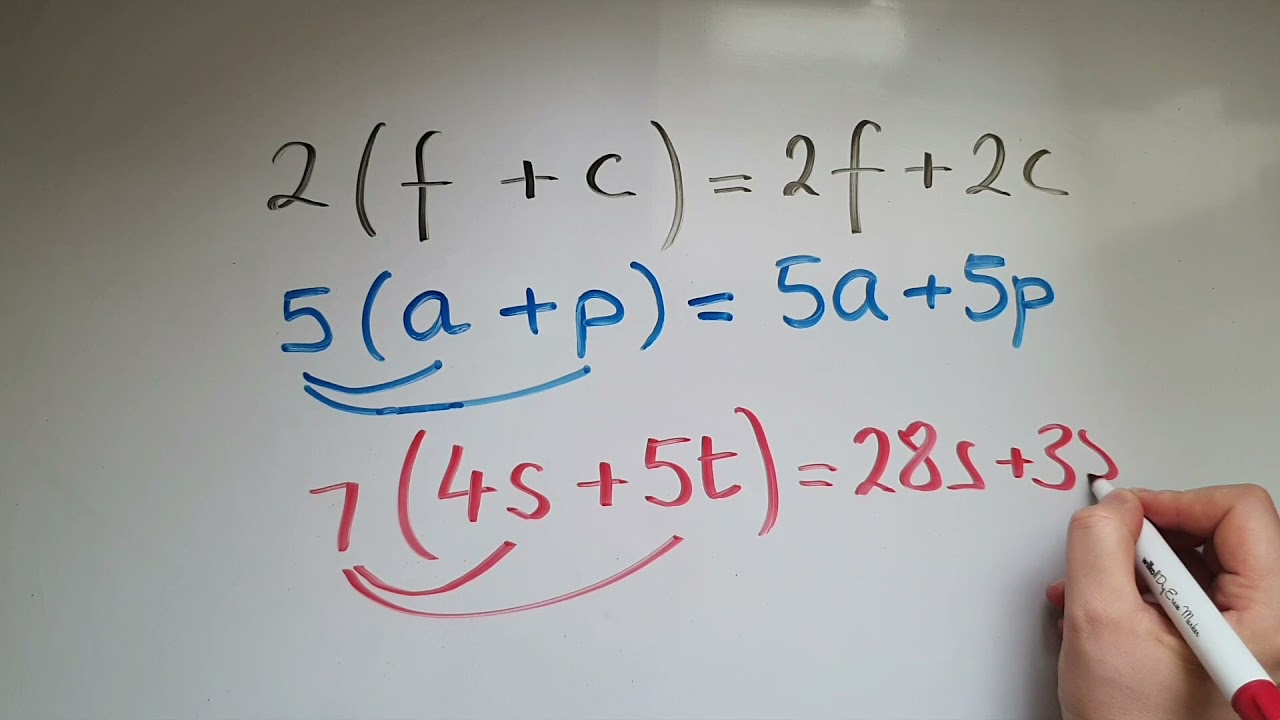 2(f + c) = 2f + 2c
5(a + p) = 5a + 5p
7(4s + 5t) = 28s + 35
wilko Dry Erase Marker